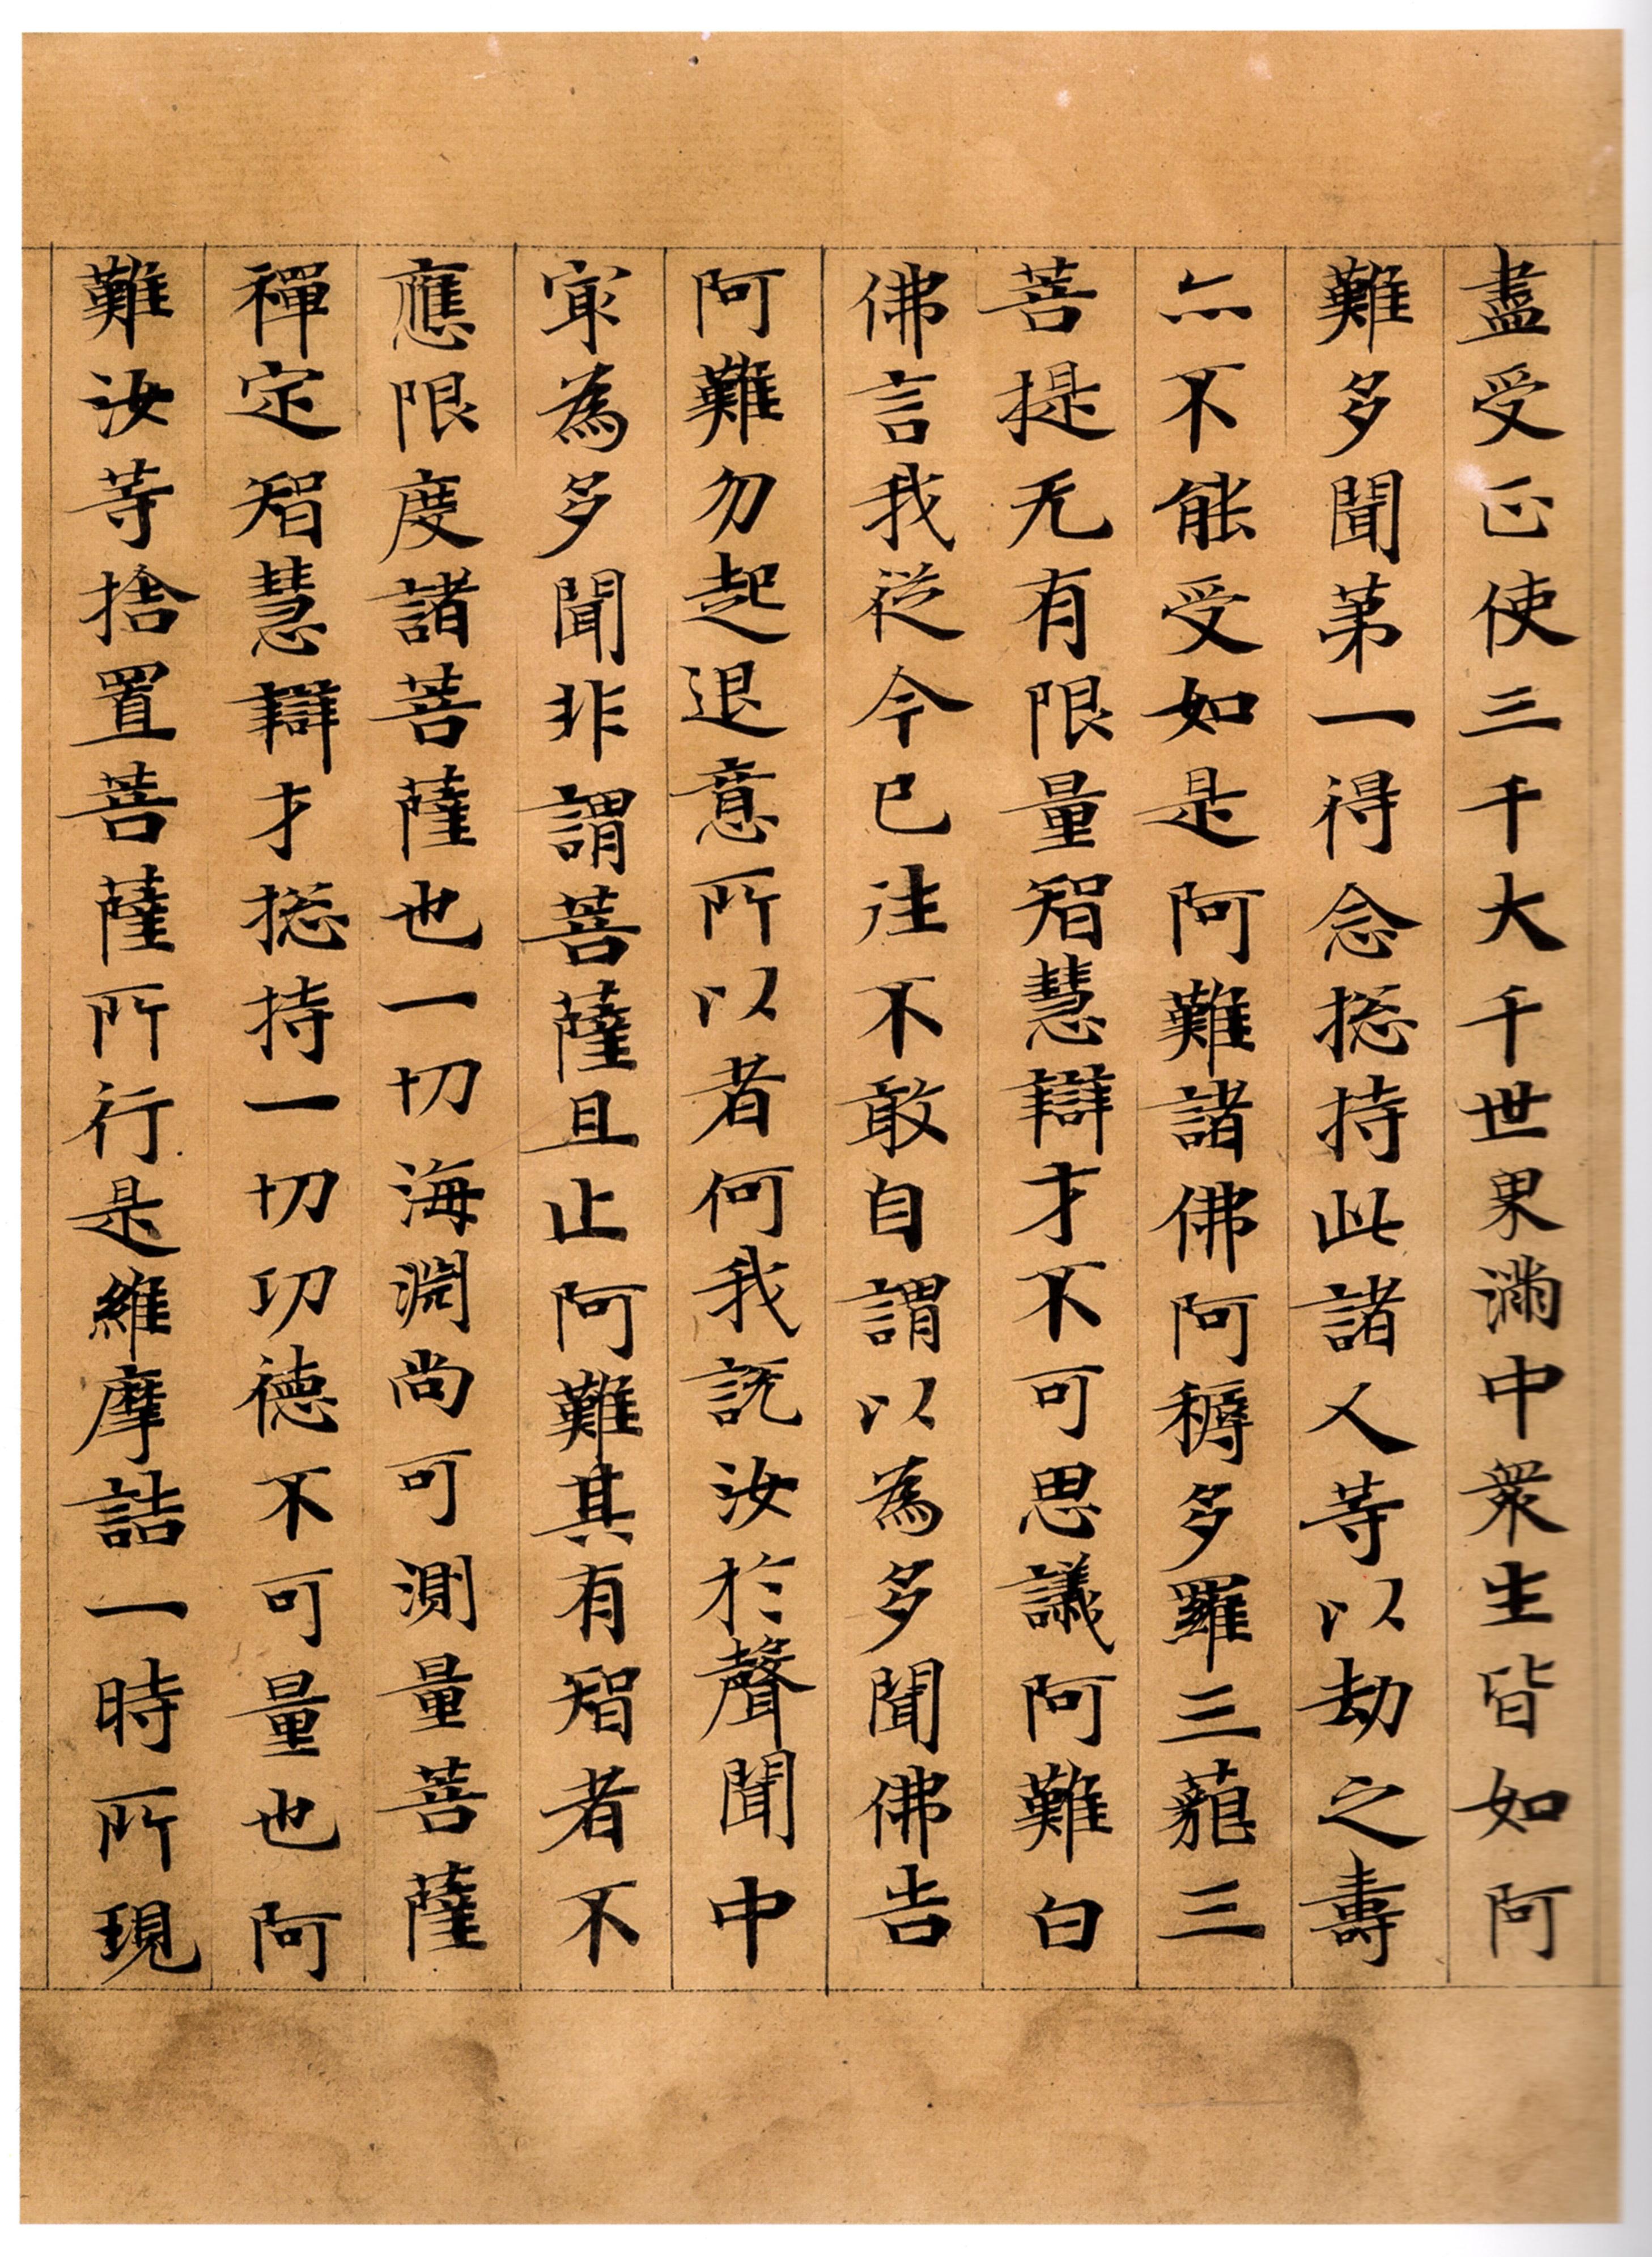 盡受正使三千大千世界滿中衆生皆如阿
難多聞第一得念捴持此諸人等以劫之壽
亦不能受如是阿難諸佛阿耨多羅三藐三
菩提无有限量智慧辯才不可思議阿難白
佛言我從今已往不敢自謂以為多聞佛告
阿難勿起退意所以者何我說汝於聲聞中
冣為多聞非謂菩薩且止阿難其有智者不
應限度諸菩薩也一切海淵尚可測量菩薩
禪定智慧辯才捴持一切功德不可量也阿
難汝等捨置菩薩所行是維摩詰一時所現